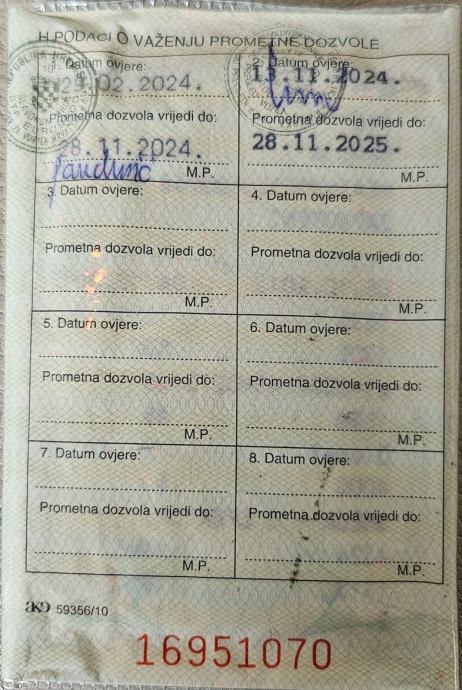 H PODACI O VAŽENJU PROMETNE DOZVOLE
1. Datum ovjere:
23.02.2024.
Prometna dozvola vrijedi do:
28.11.2024.
M.P.
2. Datum ovjere:
13.11.2024.
Prometna dozvola vrijedi do:
28.11.2025.
M.P.
3. Datum ovjere:
Prometna dozvola vrijedi do:
M.P.
4. Datum ovjere:
Prometna dozvola vrijedi do:
M.P.
5. Datum ovjere:
Prometna dozvola vrijedi do:
M.P.
6. Datum ovjere:
Prometna dozvola vrijedi do:
M.P.
7. Datum ovjere:
Prometna dozvola vrijedi do:
M.P.
8. Datum ovjere:
Prometna dozvola vrijedi do:
M.P.
AKD 59356/10
16951070